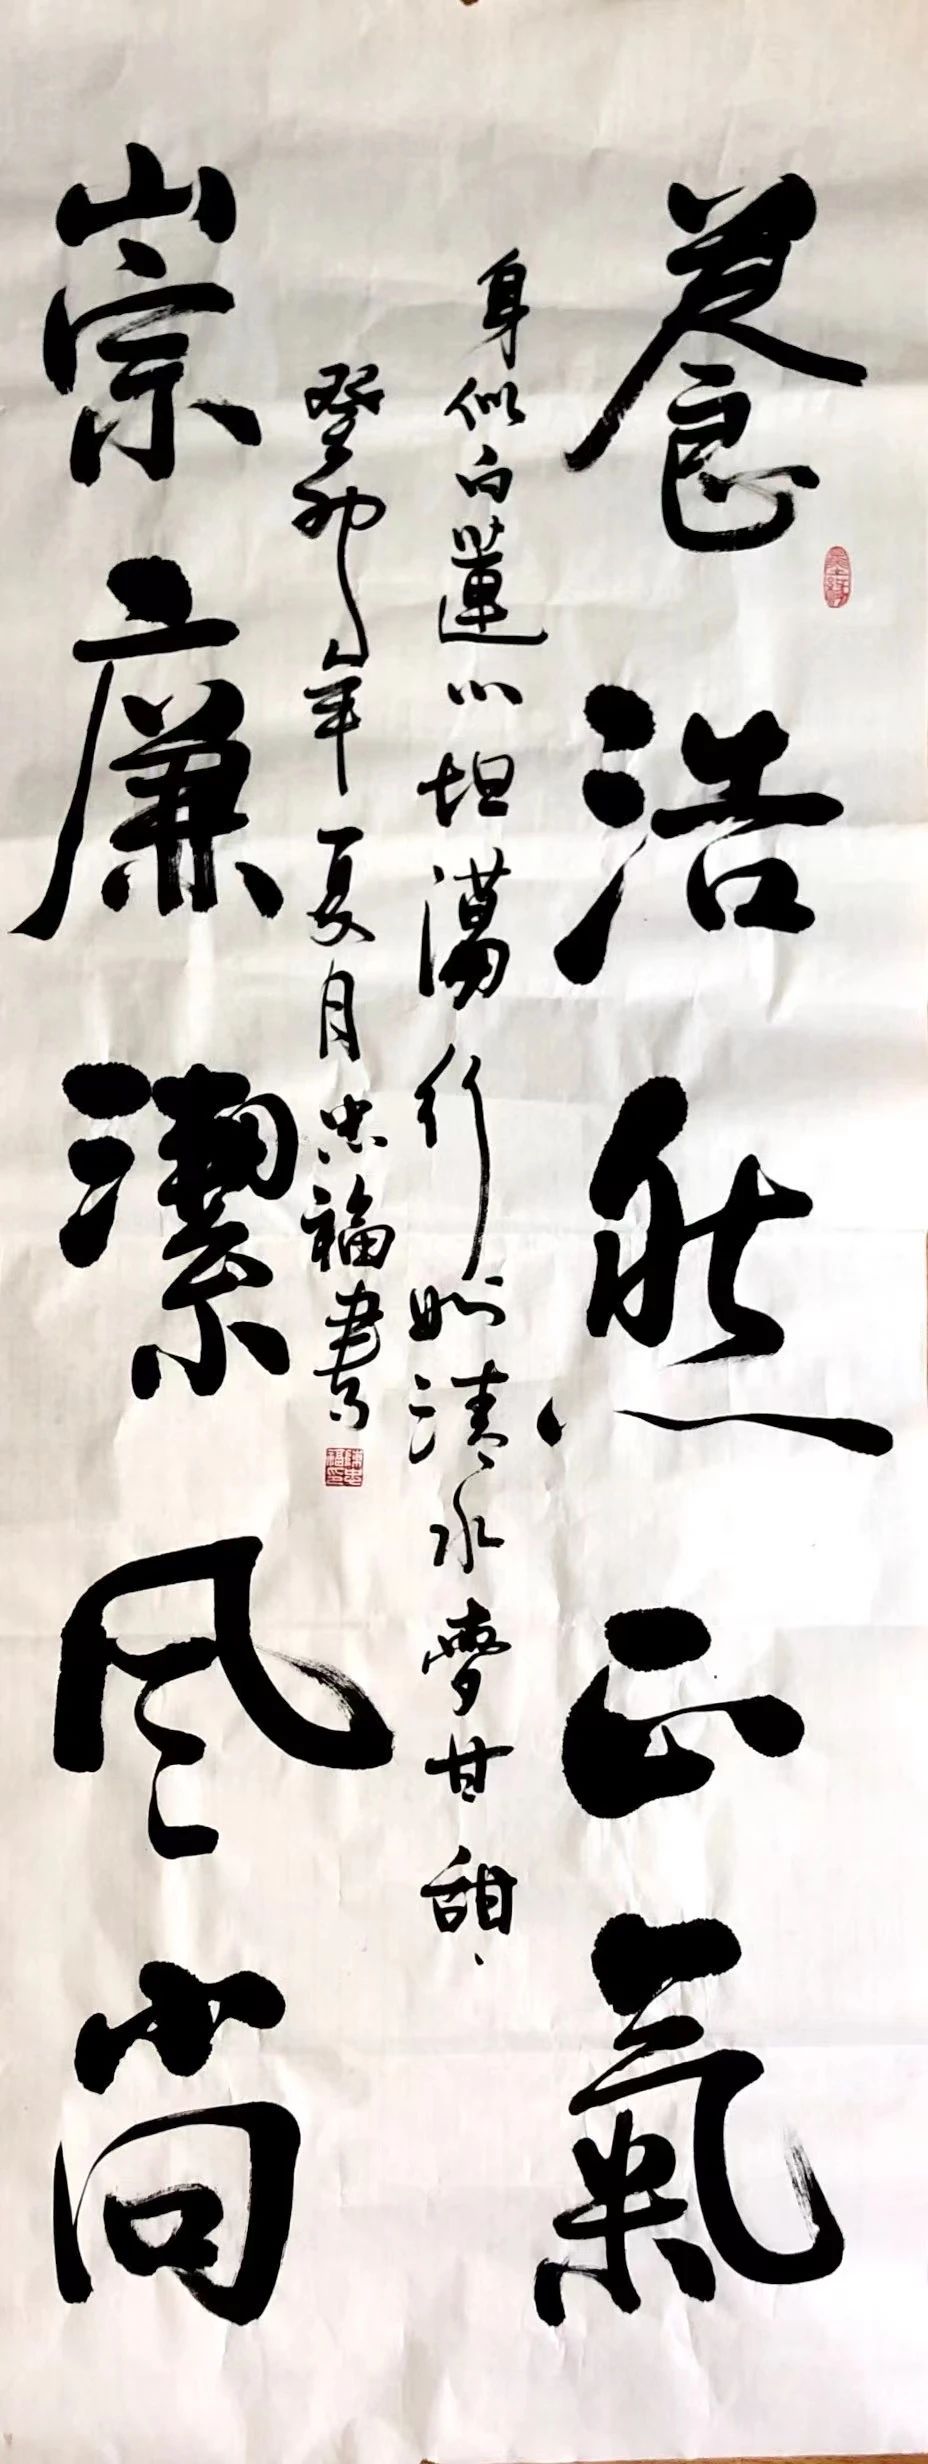 養浩然正氣
身似白蓮心坦蕩行如清水夢甘甜
癸卯年夏月忠福書
崇廉潔風尚